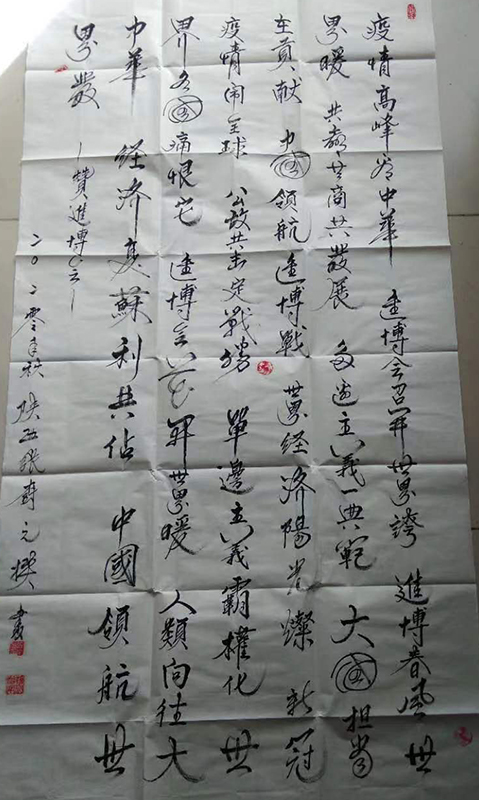 疫情高峰 中華 進博会召开世界誇 進博春風世
界暖 共赢共商共發展 多边主义一典範 大国担当
在貢献 中国领航進博戰 世界经济陽光燦 新冠
疫情闹全球 公敌共击定戰勝 單邊主义霸權化 世
界各国痛恨它 進博会 开世界暖 人類向往大
中華 经济复蘇利共佔 中國領航世
界發
—贊進博会—
二〇二零年秋 陕西張 之撰 書